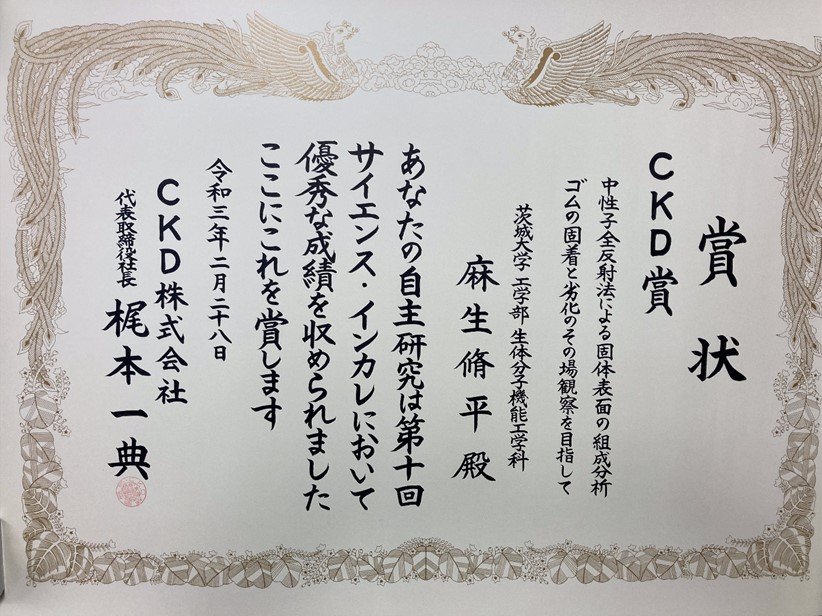 賞状
CKD賞
中性子全反射法による固体表面の組成分析
ゴムの固着と劣化のその場観察を目指して
茨城大学 工学部 生体分子機能工学科
麻生脩平殿
あなたの自主研究は第十回
サイエンス・インカレにおいて
優秀な成績を収められました
ここにこれを賞します
令和三年二月二十八日
CKD株式会社
代表取締役社長 梶本一典